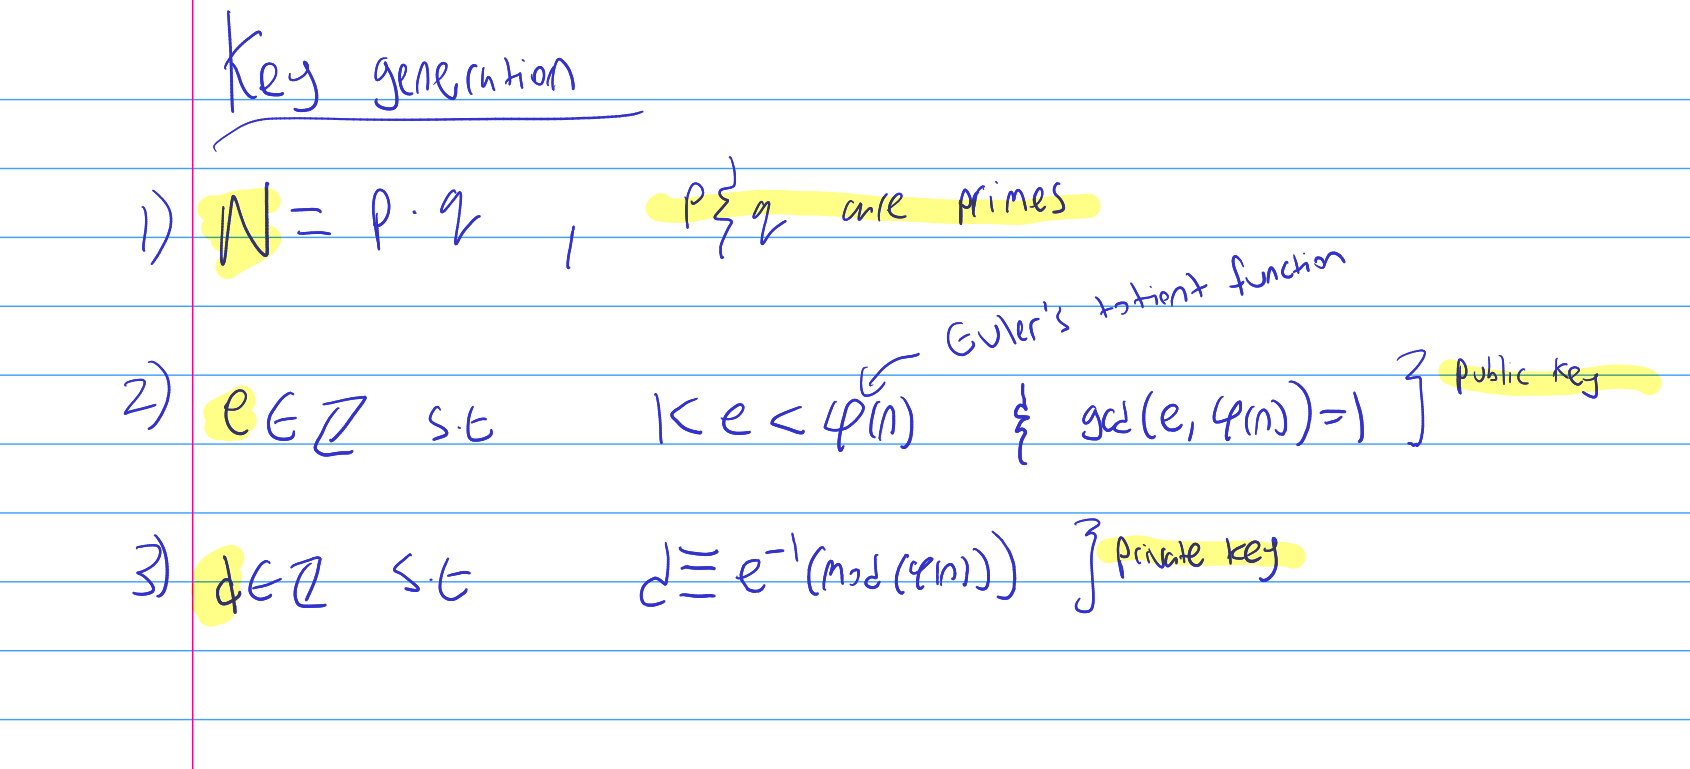 Key generation
1) N = p · q , p & q are primes
Euler's totient function
2) e ∈ ℤ s.t 1 < e < φ(n) & gcd(e, φ(n)) = 1 } Public key
3) d ∈ ℤ s.t d ≡ e⁻¹ (mod (φ(n))) } Private key